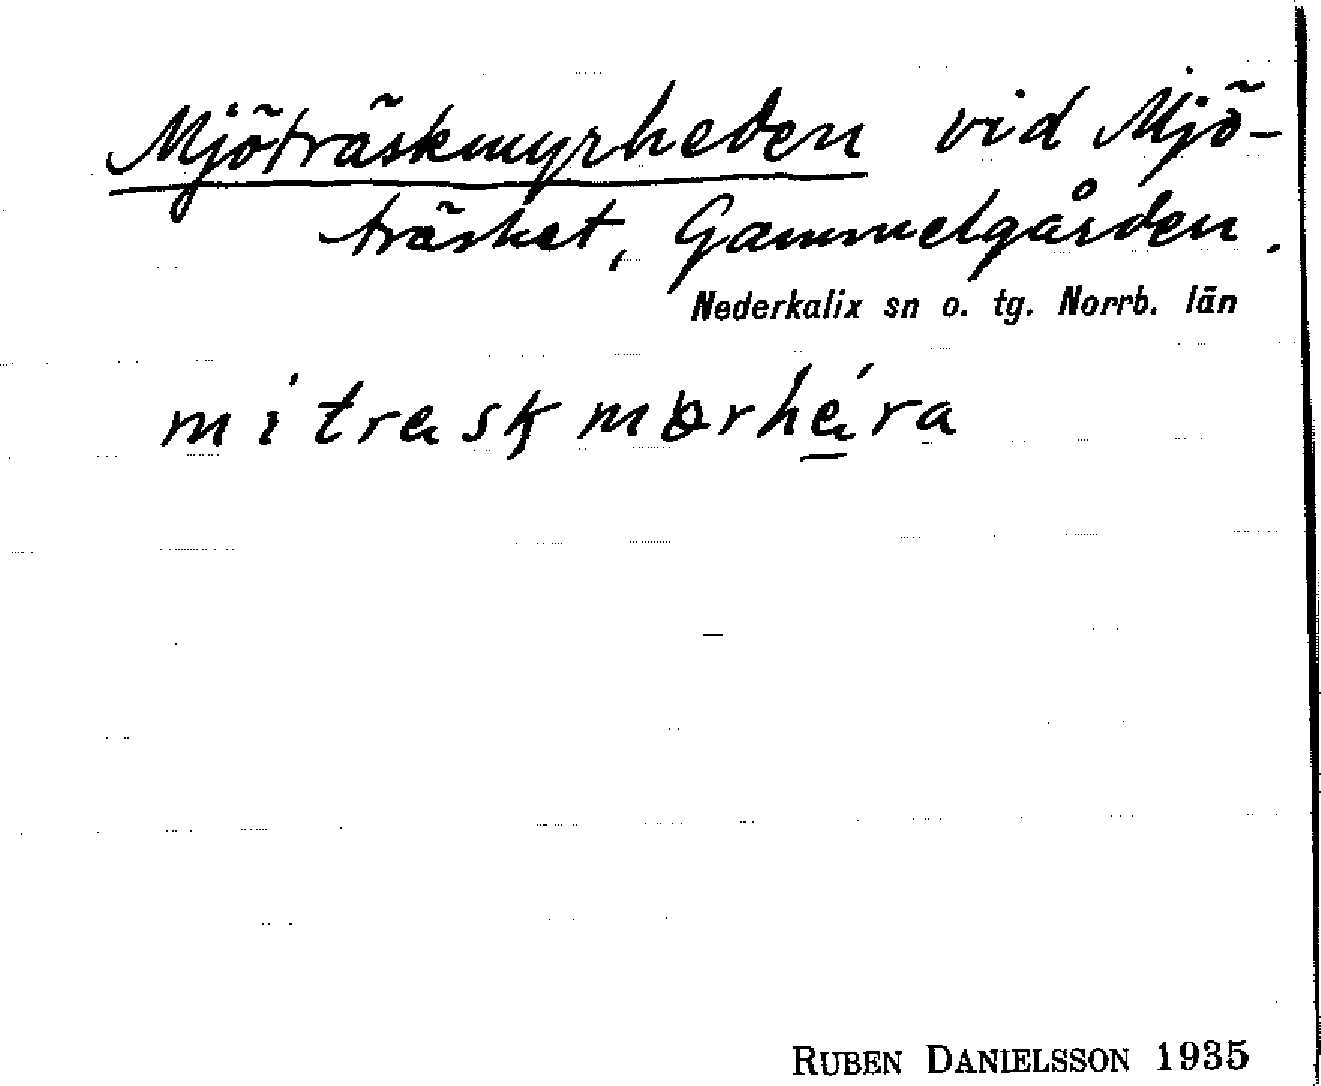 Mjöträskmyrheden vid Mjö-
träsket, Gammelgården.
Nederkalix sn o. tg. Norrb. län
RUBEN DANIELSSON 1935